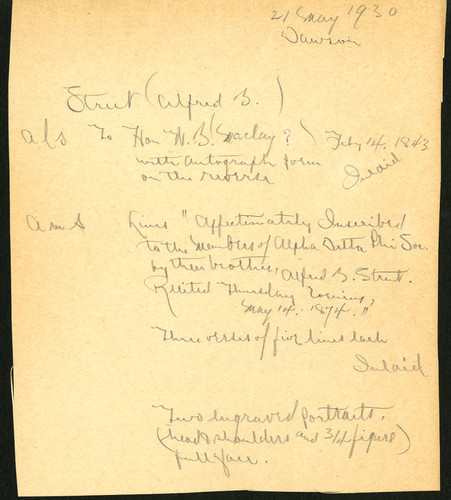 21 May 1930
Dawson
Street (Alfred B.)
a l s To Hon W. B. (Maclay?) Feby 14, 1843
with autograph poem Inlaid
on the reverse
A m S Lines "Affectionately Inscribed
to the Members of Alpha Delta Phi Soc.
by their brother, Alfred B. Street.
Recited Thursday Evening,
May 14, 1874."
Three verses of five lines each
Inlaid
Two engraved portraits.
(head & shoulders and 3/4 figure)
full face.